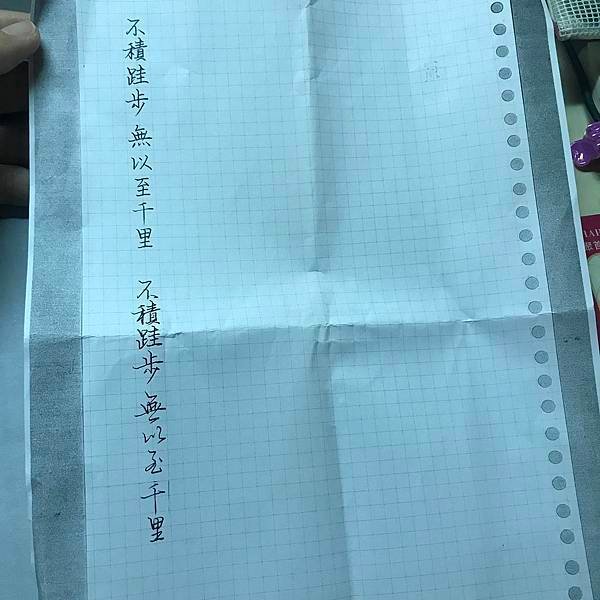 不積跬步 無以至千里
不積跬步 無以至千里